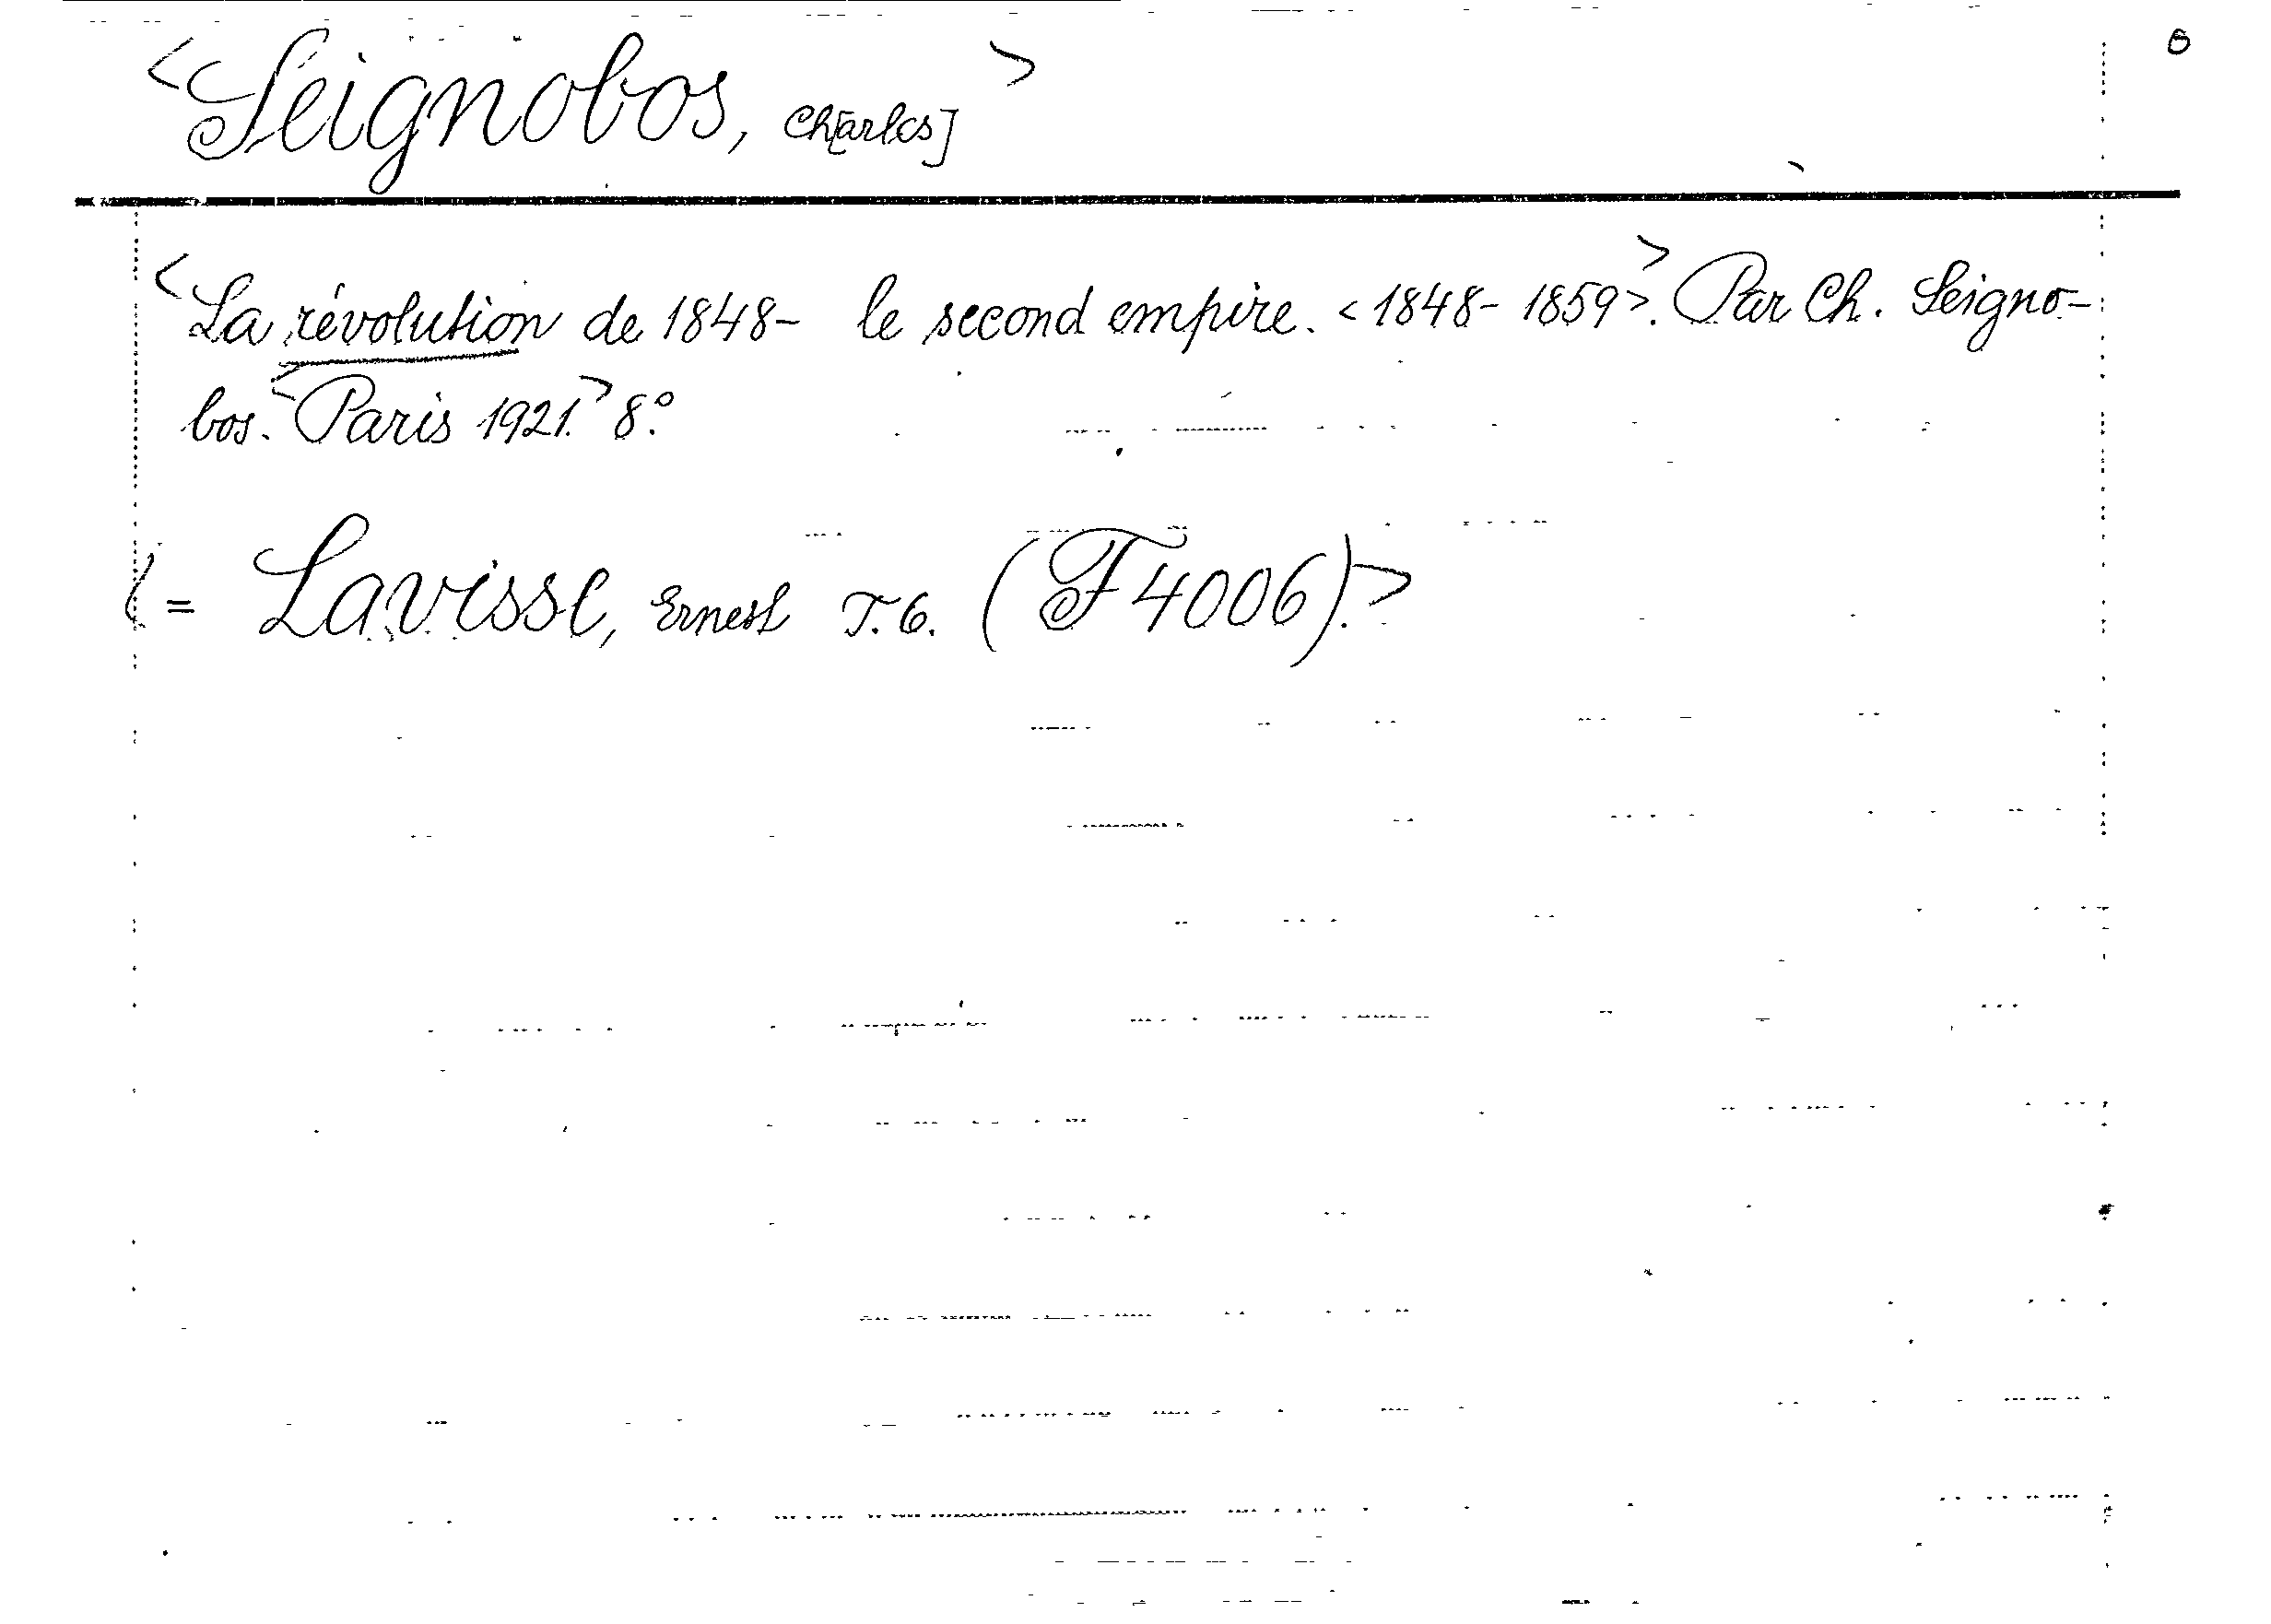 <Seignobos, Ch[arles]>
<La révolution de 1848- le second empire. <1848-1859>>. Par Ch. Seigno-
bos. <Paris 1921.> 8°.
(= Lavisse, Ernest T. 6. (F 4006).>